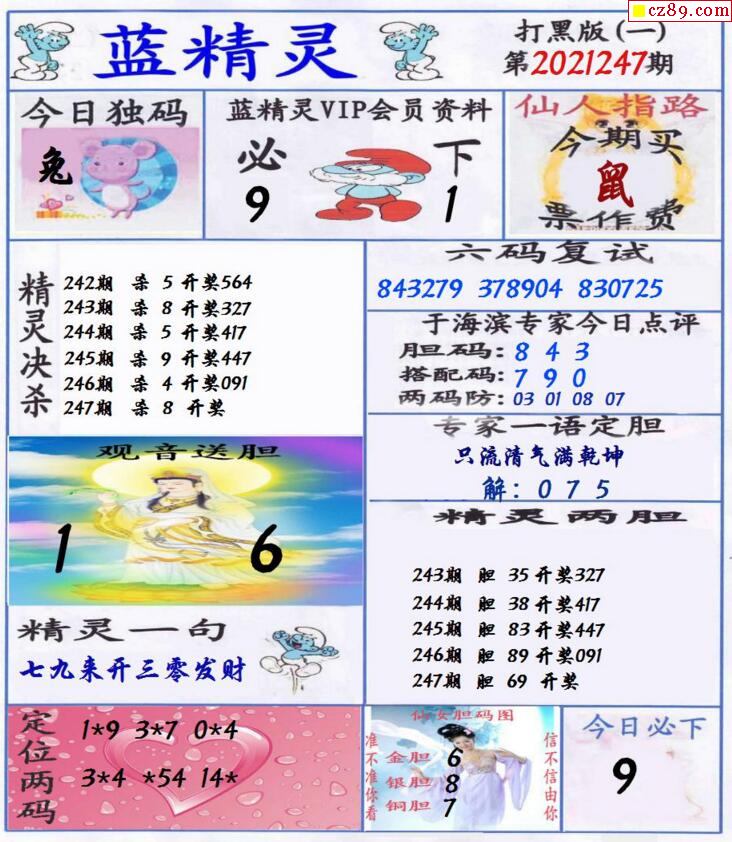 cz89.com
蓝精灵
打黑版(一)
第2021247期
今日独码
兔
蓝精灵VIP会员资料
必 下
9 1
仙人指路
今期买
鼠
票作费
精灵决杀
242期 杀 5 开奖564
243期 杀 8 开奖327
244期 杀 5 开奖417
245期 杀 9 开奖447
246期 杀 4 开奖091
247期 杀 8 开奖
六码复试
843279 378904 830725
于海滨专家今日点评
胆码: 8 4 3
搭配码: 7 9 0
两码防: 03 01 08 07
专家一语定胆
只流清气满乾坤
解: 0 7 5
观音送胆
1 6
精灵两胆
243期 胆 35 开奖327
244期 胆 38 开奖417
245期 胆 83 开奖447
246期 胆 89 开奖091
247期 胆 69 开奖
精灵一句
七九来开三零发财
定位两码
1*9 3*7 0*4
3*4 *54 14*
仙女胆码图
准不准你看
金胆 6
银胆 8
铜胆 7
信不信由你
今日必下
9